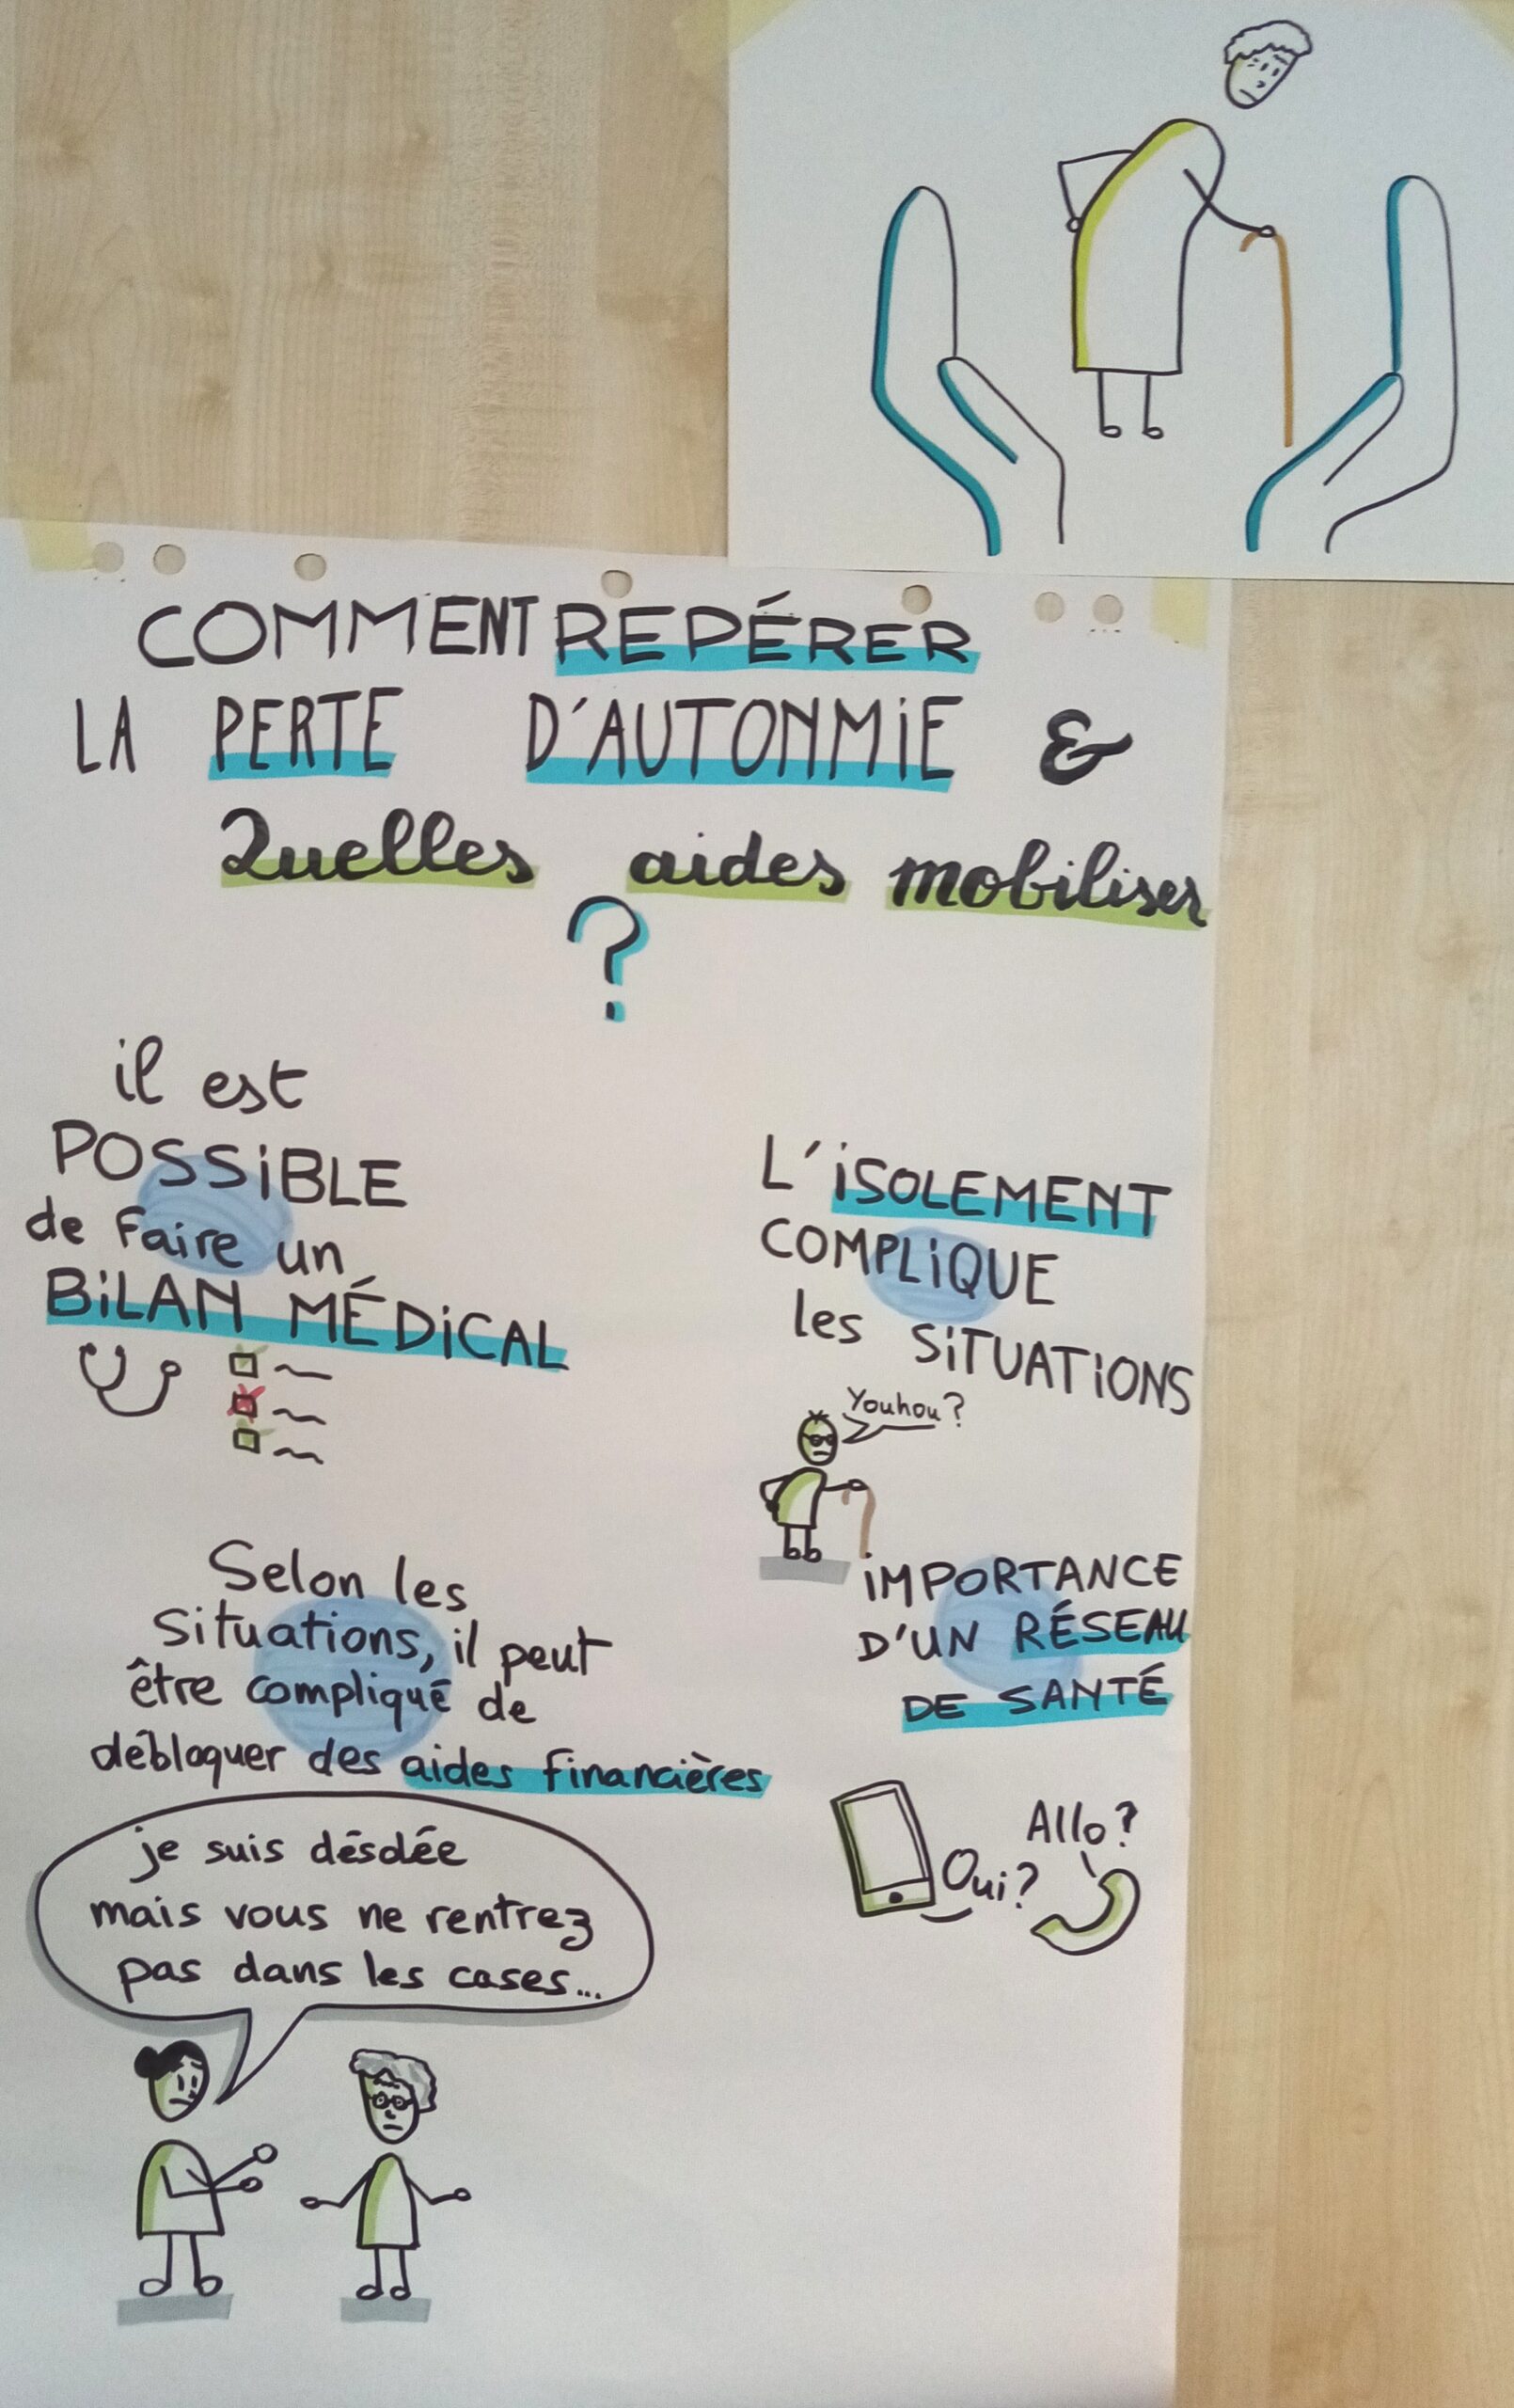 COMMENT REPÉRER
LA PERTE D'AUTONMIE &
Quelles aides mobiliser
?
il est
POSSIBLE
de faire un
BILAN MÉDICAL
L'ISOLEMENT
COMPLIQUE
les SITUATIONS
Youhou?
Selon les
situations, il peut
être compliqué de
débloquer des aides financières
je suis désolée
mais vous ne rentrez
pas dans les cases...
IMPORTANCE
D'UN RÉSEAU
DE SANTÉ
Allo?
Oui?